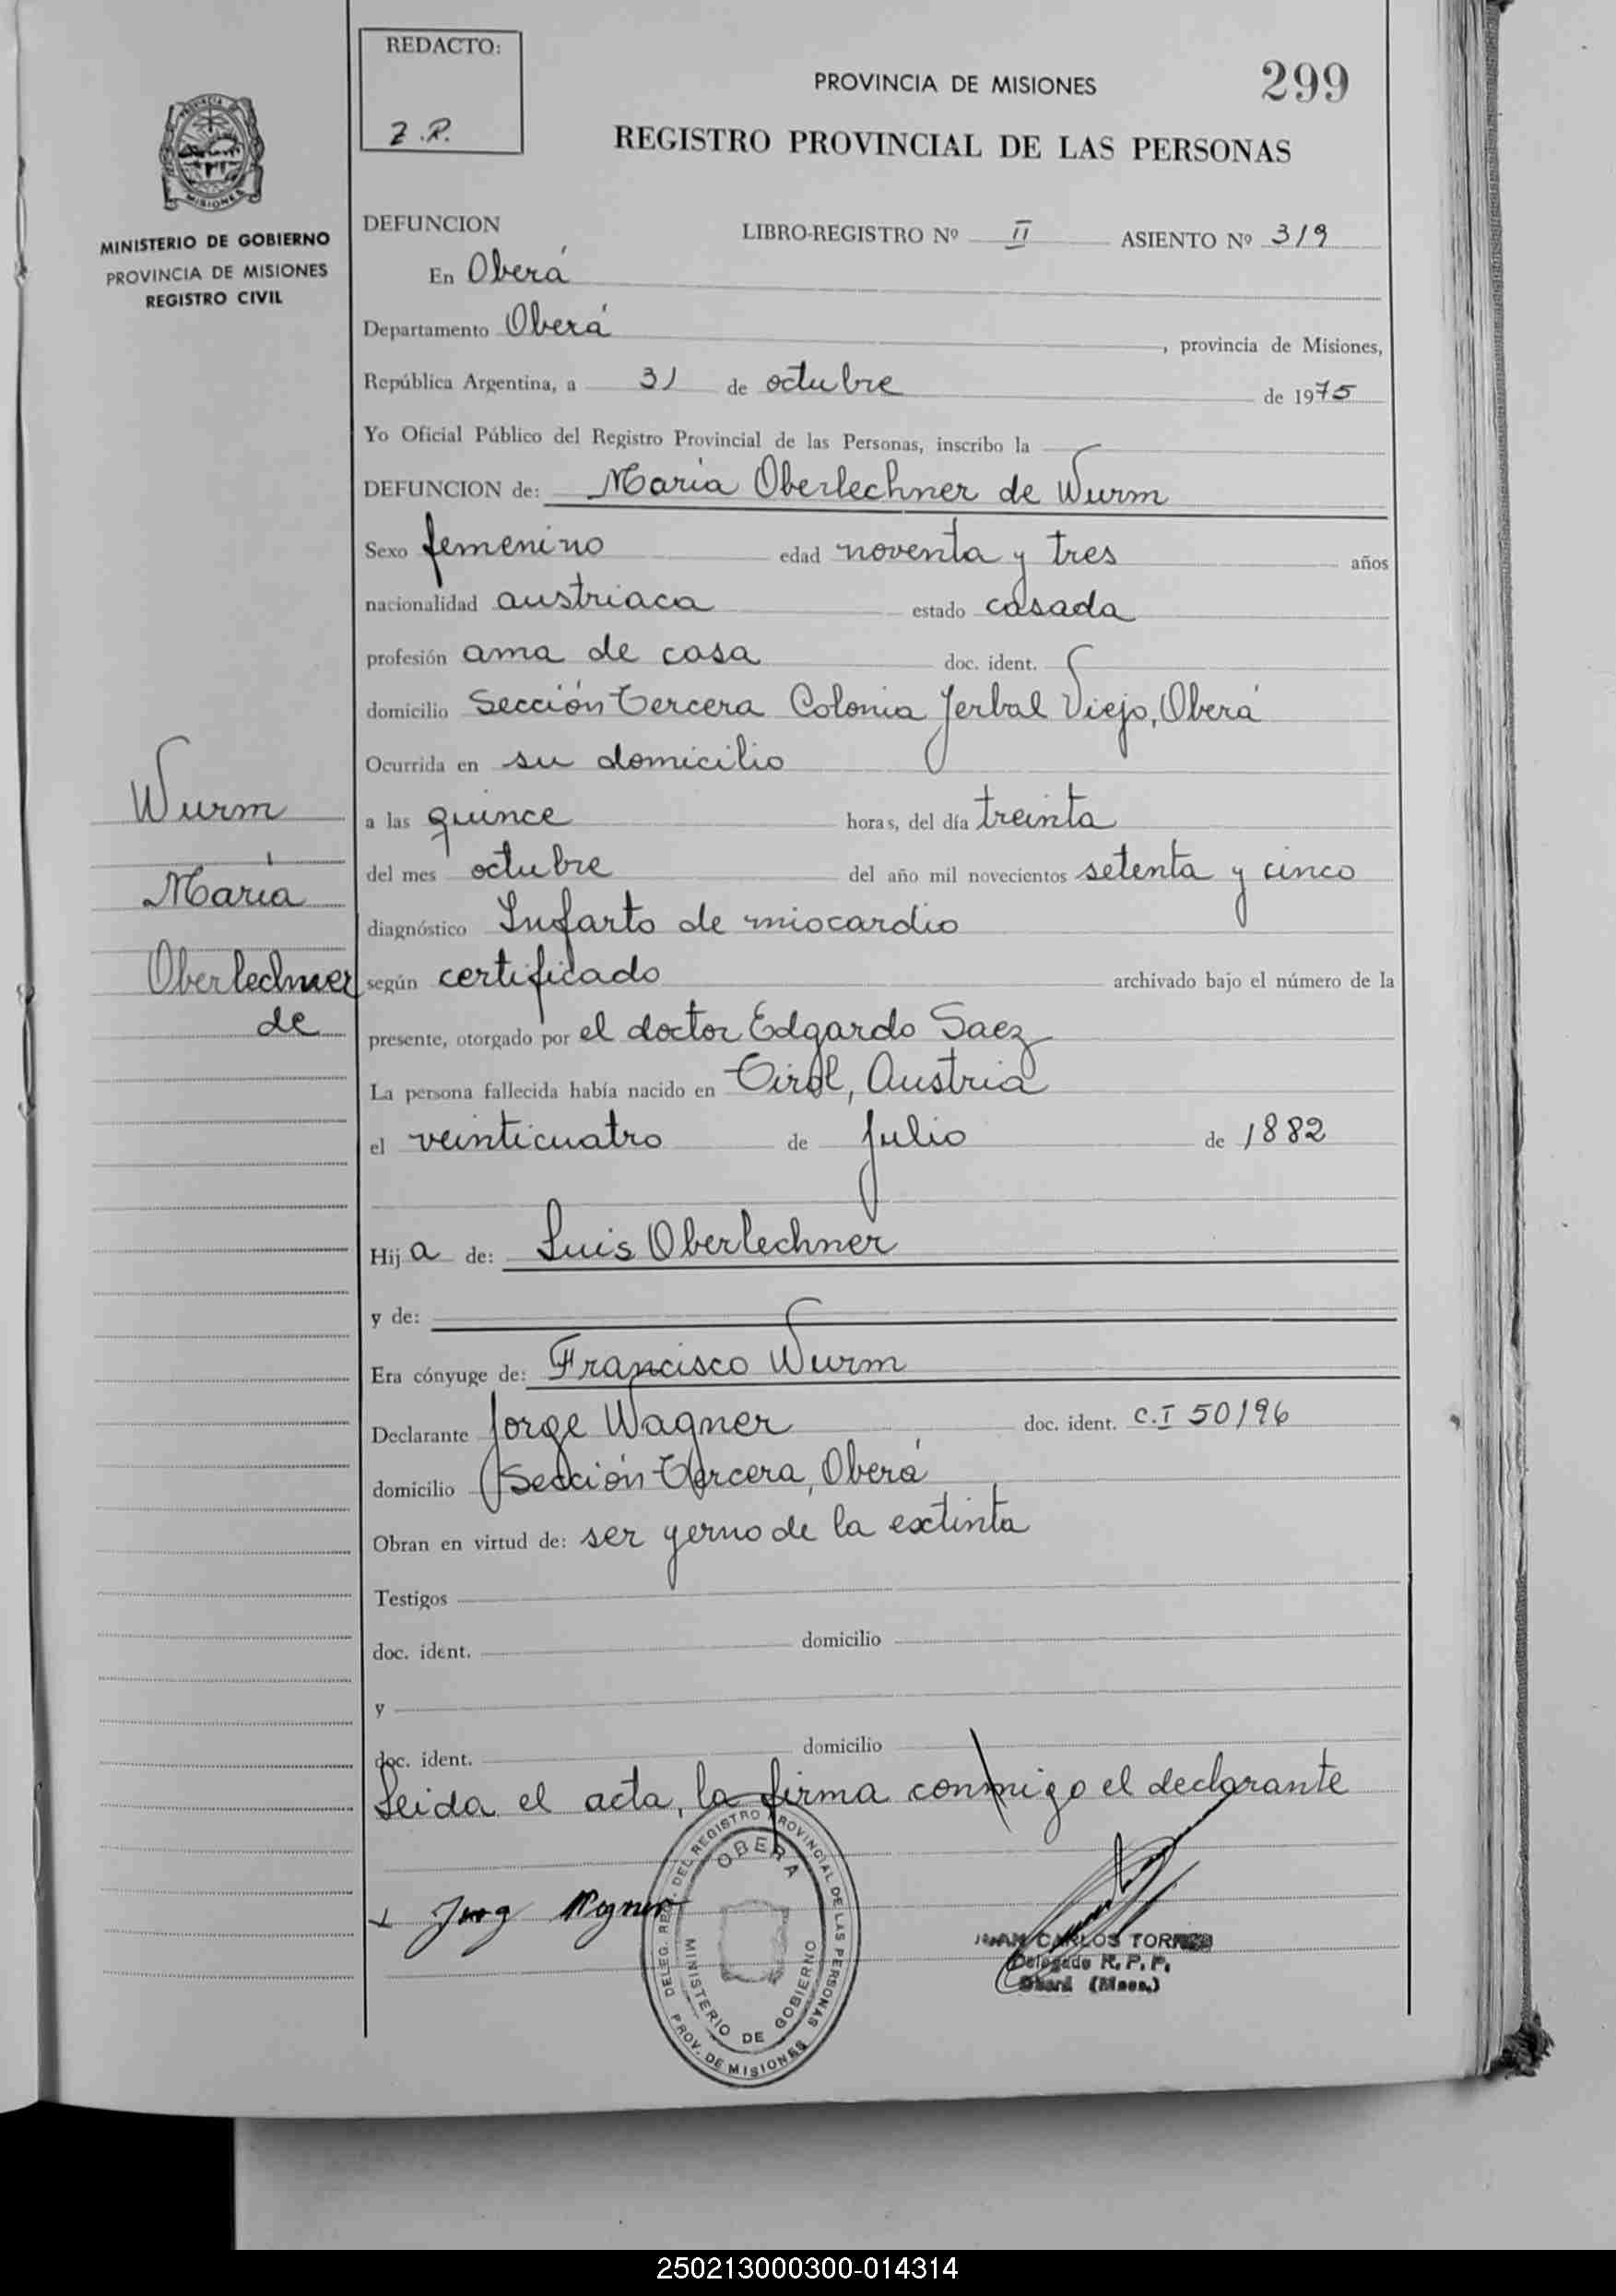 REDACTO:
Z.R.
PROVINCIA DE MISIONES
299
REGISTRO PROVINCIAL DE LAS PERSONAS
MINISTERIO DE GOBIERNO
PROVINCIA DE MISIONES
REGISTRO CIVIL
DEFUNCION LIBRO-REGISTRO Nº II ASIENTO Nº 319
En Oberá
Departamento Oberá, provincia de Misiones,
República Argentina, a 31 de octubre de 1975
Yo Oficial Público del Registro Provincial de las Personas, inscribo la
DEFUNCION de: María Oberlechner de Wurm
Sexo femenino edad noventa y tres años
nacionalidad austriaca estado casada
profesión ama de casa doc. ident.
domicilio Sección Tercera Colonia Yerbal Viejo, Oberá
Ocurrida en su domicilio
a las quince horas, del día treinta
del mes octubre del año mil novecientos setenta y cinco
diagnóstico Infarto de miocardio
según certificado archivado bajo el número de la
presente, otorgado por el doctor Edgardo Saez
La persona fallecida había nacido en Tirol, Austria
el veinticuatro de julio de 1882
Hija de: Luis Oberlechner
y de:
Era cónyuge de: Francisco Wurm
Declarante Jorge Wagner doc. ident. C.I 50196
domicilio Sección Tercera, Oberá
Obran en virtud de: ser yerno de la extinta
Testigos
doc. ident. domicilio
y
doc. ident. domicilio
Leida el acta, la firma conmigo el declarante
Wurm
María
Oberlechner
de
DELEG. REG. DEL REGISTRO PROVINCIAL DE LAS PERSONAS
OBERA
MINISTERIO DE GOBIERNO
PROV. DE MISIONES
JUAN CARLOS TORRES
Delegado R. P. P.
Oberá (Mnes.)
250213000300-014314